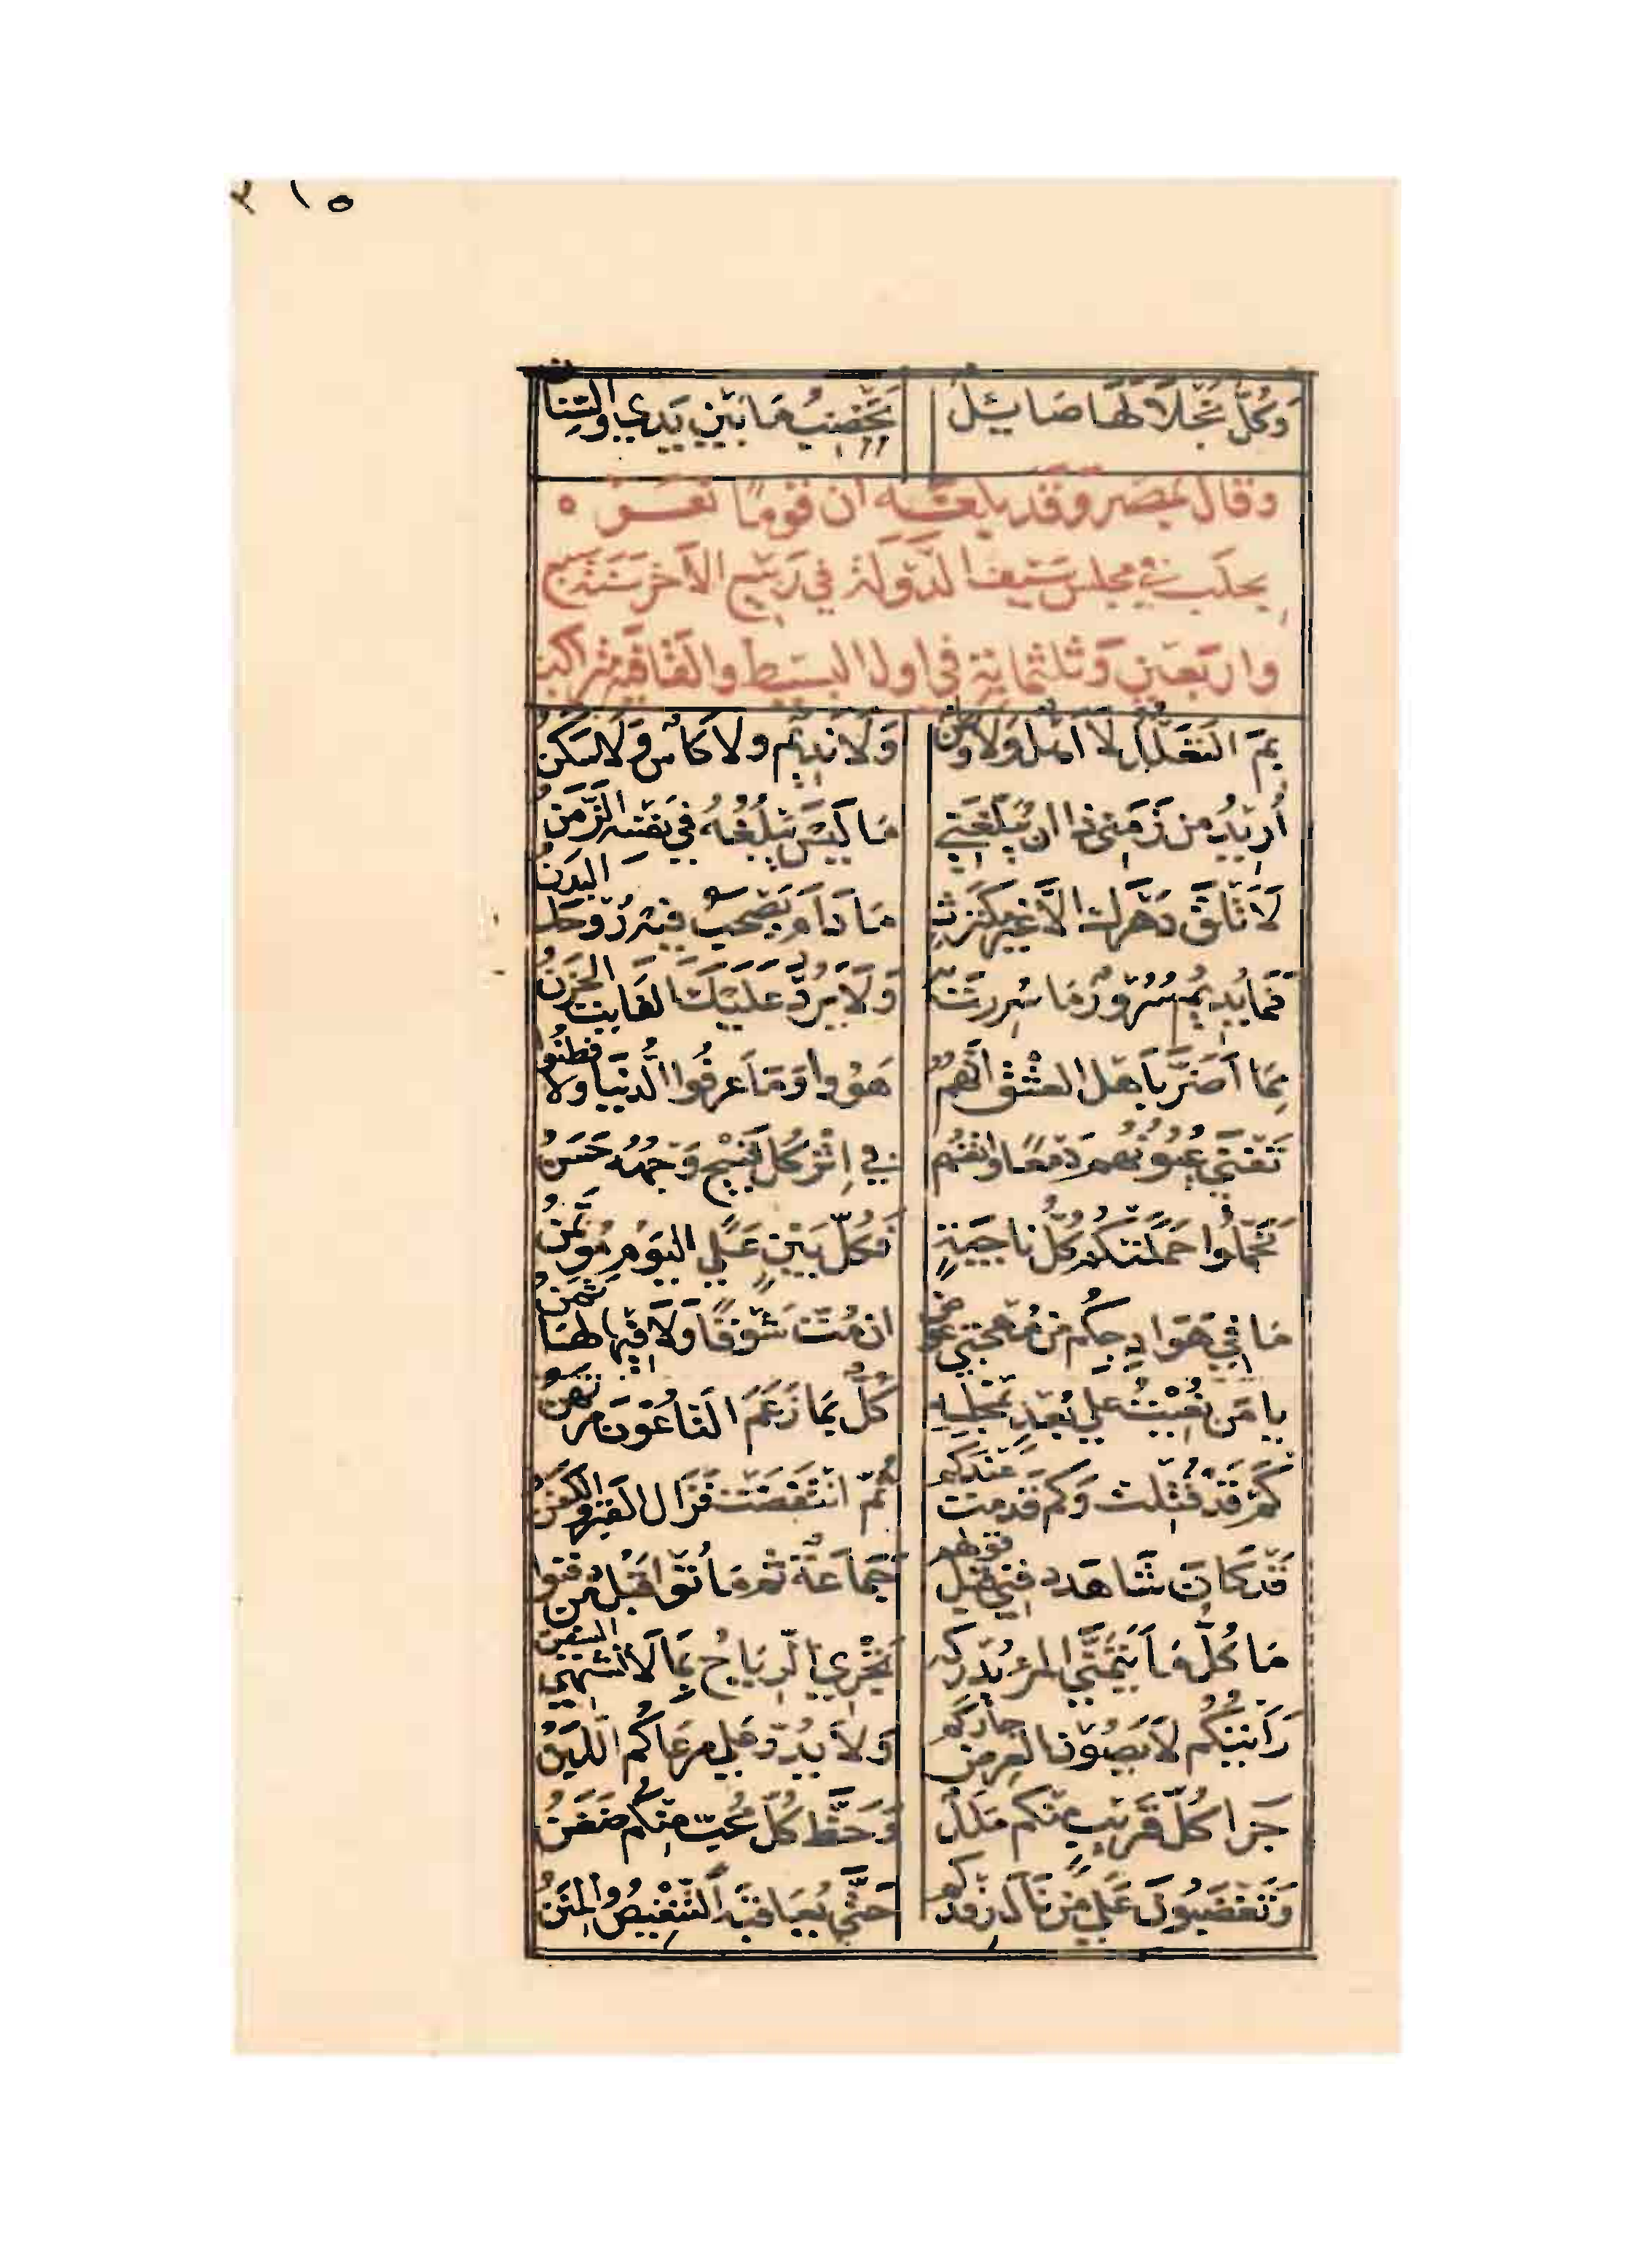 ٢١٥
وَكُلُّ نَجْلَاءٍ لَهَا صَائِلٌ يَخْضِبُ مَا بَيْنَ يَدَيْ وَالسِّنَان
وقال بمصر وقد بلغه ان قومًا نعوه
بحلب في مجلس سيف الدولة في ربيع الآخر سنة سبع
واربعين وثلثماية في اول البسيط والقافية متراكب
بِمَ التَعَلُّلُ لَا اَهْلٌ وَلَا وَطَنُ وَلَا نَدِيمٌ وَلَا كَاْسٌ وَلَا سَكَنُ
أُرِيدُ مِن زَمَنِي ذا ان يُبَلِّغَنِي مَا لَيْسَ يَبْلُغُهُ فِي نَفْسِهِ الزَّمَنُ
لَا تَلْقَ دَهْرَكَ الَّا غَيْرَ مُكْتَرِثٍ مَا دَامَ يَصْحَبُ فِيهِ رُوحَكَ البَدَنُ
فَمَا يُدِيمُ سُرُورٌ مَا سُرِرْتَ بِهِ وَلَا يَرُدُّ عَلَيْكَ الفَايِتَ الحَزَنُ
مِمَّا اَضَرَّ بِاَهْلِ العِشْقِ اَنَّهُمُ هَوُوا وَمَا عَرَفُوا الدُّنْيَا وَلَا فَطِنُوا
تَفْنَى عُيُونُهُمُ دَمْعًا وَانْفُسُهُمْ فِي اِثْرِ كُلِّ قَبِيحٍ وَجْهُهُ حَسَنُ
تَحَمَّلُوا حَمَلَتْكُم كُلُّ نَاجِيَةٍ فَكُلُّ بَيْنٍ عَلَيَّ اليَوْمَ مُؤْتَمَنُ
مَا فِي هَوَادِجِكُم مِنْ مُهْجَتِي عِوَضٌ ان مُتُّ شَوْقًا وَلَا فِيهَا لَهَا ثَمَنُ
يا مَن نُعِيتُ عَلَى بُعْدٍ بِمَجْلِسِهِ كُلٌّ بِمَا زَعَمَ النَاعُوْنَ مُرْتَهَنُ
كَمْ قَدْ قُتِلْتُ وَكَم قَدْ مُتُّ عِنْدَكُم ثُمَّ انْتَفَضْتُ فَزَالَ القَبْرُ وَالكَفَنُ
قَدْ كَانَ شَاهَدَ دَفْنِي قَبْلَ قَوْلِهِم جَمَاعَةٌ ثُمَّ مَاتُوا قَبْلَ مَن دَفَنُوا
مَا كُلُّ مَا يَتَمَنَّى المَرْءُ يُدْرِكُهُ تَجْرِي الرِيَاحُ بِمَا لَا تَشْتَهِي السُفُنُ
رَاَيْتُكُمُ لَا يَصُوْنُ العِرْضَ جَارُكُمُ وَلَا يَدُرُّ عَلَى مَرْعَاكُمُ اللَّبَنُ
جَزَا كُلِّ قَرِيْبٍ مِنْكُم مَلَلٌ وَحَظُّ كُلِّ مُحِبٍّ مِنْكُمُ ضَغَنُ
وَتَغْضَبُونَ عَلَى مَنْ نَالَ رِفْدَكُمُ حَتَّى يُعَاقِبَهُ التَّنْغِيْصُ وَالمِنَنُ